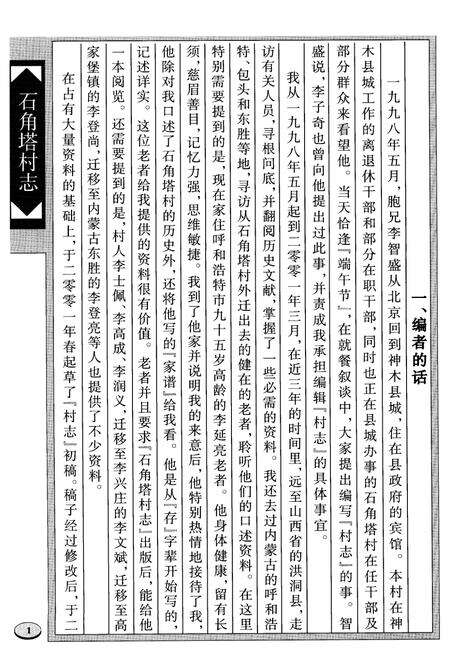 石角塔村志
一、编者的话
一九九八年五月，胞兄李智盛从北京回到神木县城，住在县政府的宾馆。本村在神
木县城工作的离退休干部和部分在职干部，同时也正在县城办事的石角塔村在任干部及
部分群众来看望他。当天恰逢『端午节』，在就餐叙谈中，大家提出编写『村志』的事。智
盛说，李子奇也曾向他提出过此事，并责成我承担编辑『村志』的具体事宜。
我从一九九八年五月起到二零零一年三月，在近三年的时间里，远至山西省的洪洞县，走
访有关人员，寻根问底，并翻阅历史文献，掌握了一些必需的资料。我还去过内蒙古的呼和浩
特、包头和东胜等地，寻访从石角塔村外迁出去的健在的老者，聆听他们的口述资料。在这里
特别需要提到的是，现在家住呼和浩特市九十五岁高龄的李延亮老者。他身体健康，留有长
须，慈眉善目，记忆力强，思维敏捷。我到了他家并说明我的来意后，他特别热情地接待了我，
他除对我口述了石角塔村的历史外，还将他写的『家谱』给我看。他是从『存』字辈开始写的，
记述详实。这位老者给我提供的资料很有价值。老者并且要求『石角塔村志』出版后，能给他
一本阅览。还需要提到的是，村人李士佩、李高成、李润义，迁移至李兴庄的李文斌，迁移至高
家堡镇的李登尚，迁移至内蒙古东胜的李登亮等人也提供了不少资料。
在占有大量资料的基础上，于二零零一年春起草了『村志』初稿。稿子经过修改后，于二
1